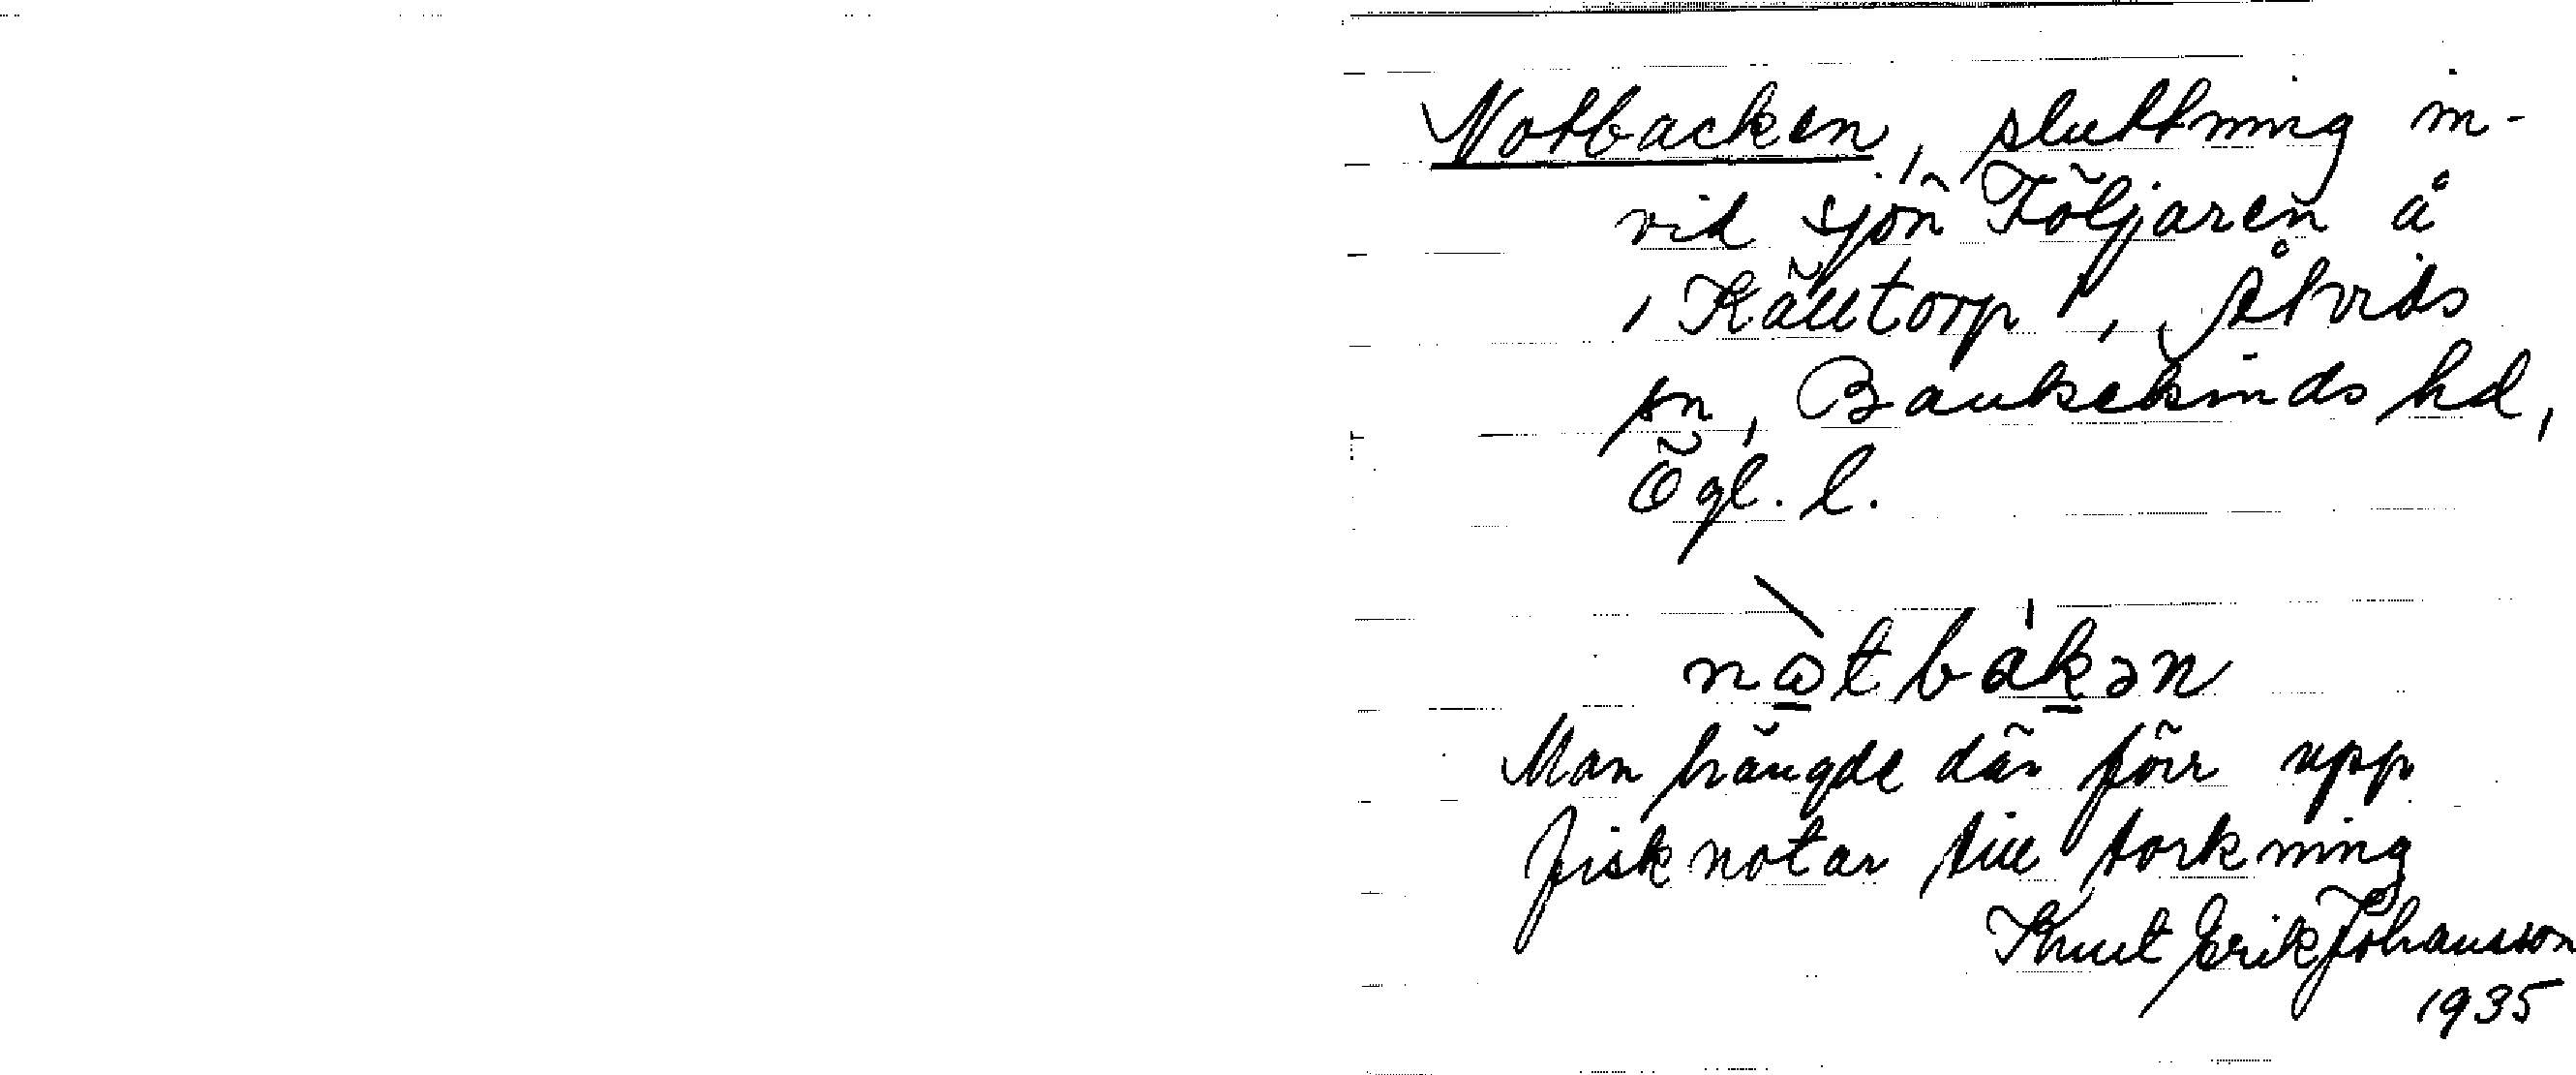 Notbacken, sluttning in-
vid sjön Följaren å
Källtorp, Åtvids
sn, Bankekinds hd,
Ögl. l.
nɷ̀tbákən
Man hängde där förr upp
fisknotar till torkning
Knut Erik Johansson
1935